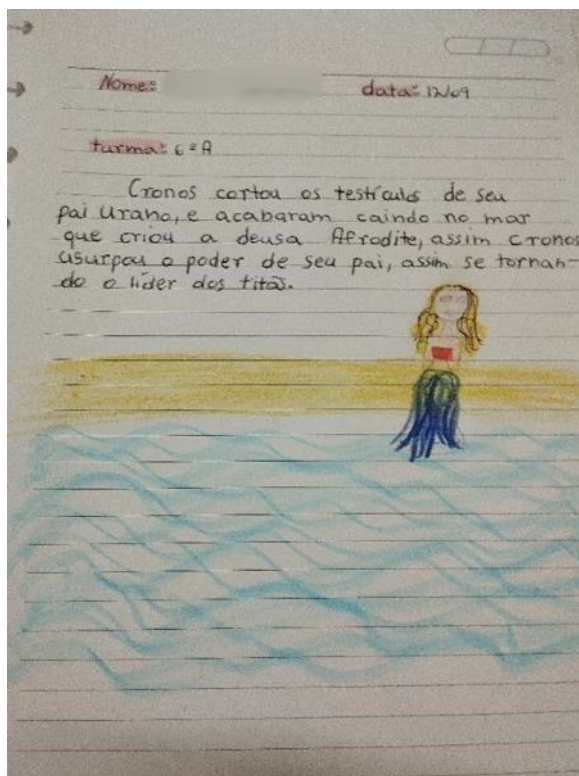 Nome: data: 12/09
turma: 6ºA
Cronos cortou os testículos de seu
pai Urano, e acabaram caindo no mar
que criou a deusa Afrodite, assim Cronos
usurpou o poder de seu pai, assim se tornan-
do o líder dos titãs.